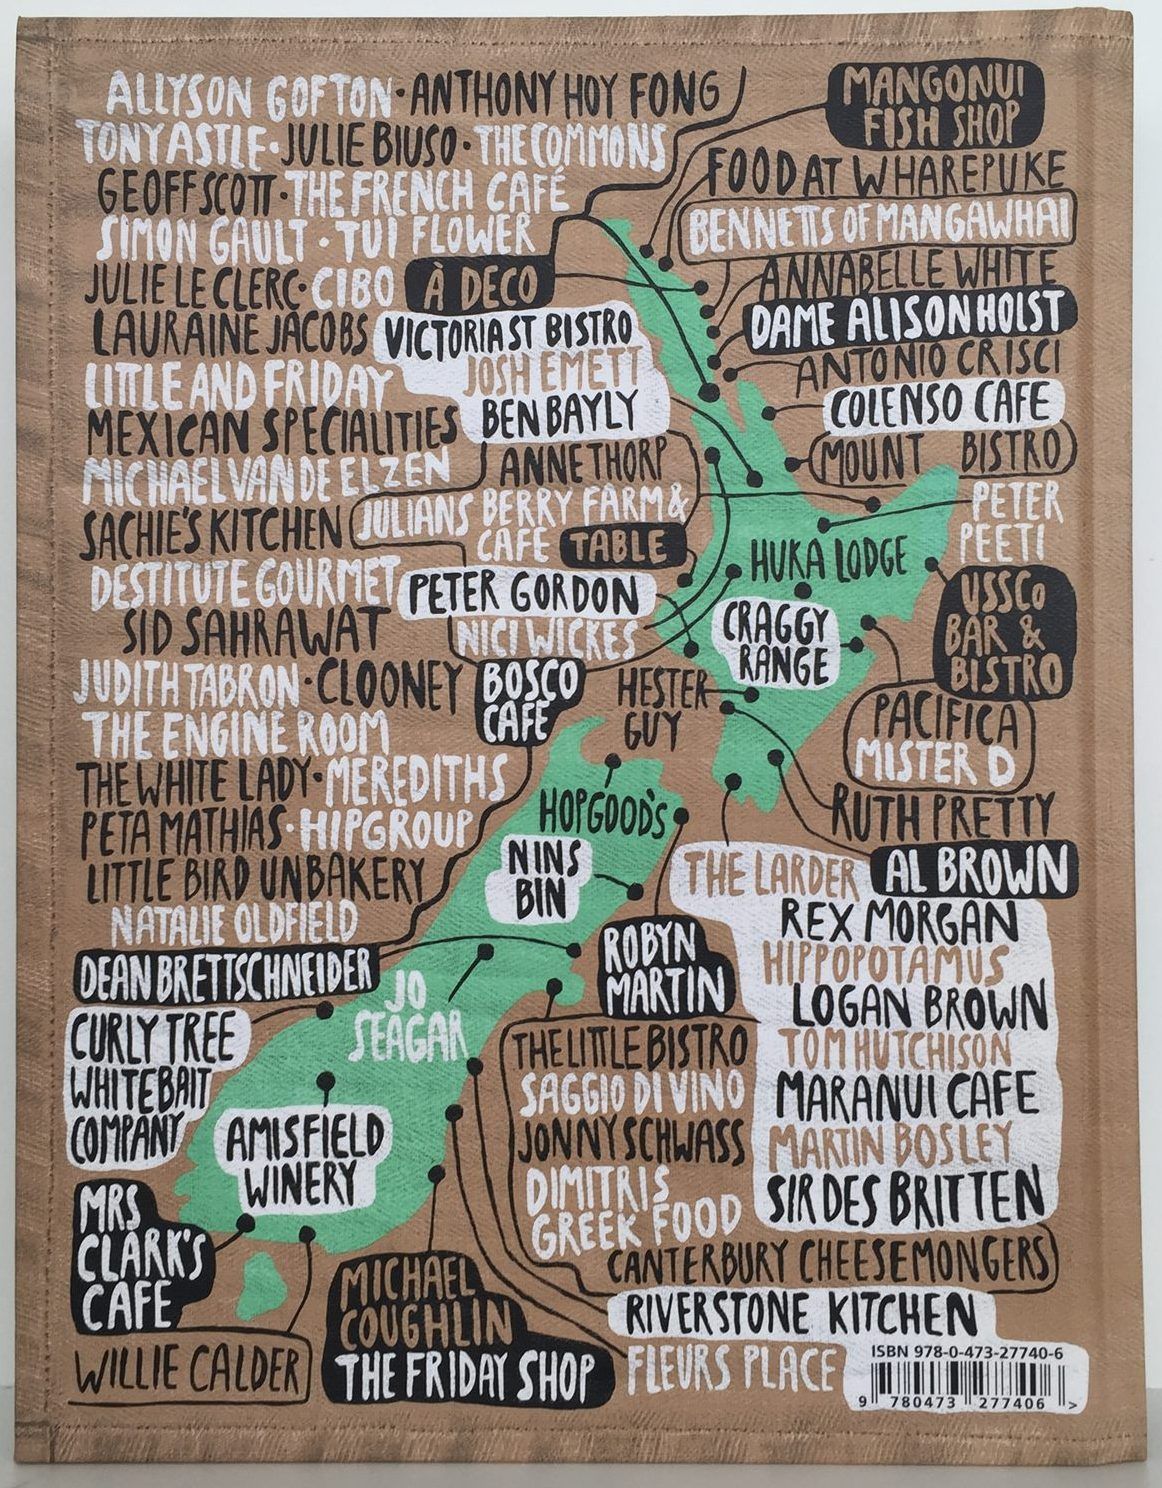 ALLYSON GOFTON · ANTHONY HOY FONG
TONY ASTLE · JULIE BIUSO · THE COMMONS
GEOFF SCOTT · THE FRENCH CAFÉ
SIMON GAULT · TUI FLOWER
JULIE LE CLERC · CIBO
À DECO
LAURAINE JACOBS
VICTORIA ST BISTRO
LITTLE AND FRIDAY
JOSH EMETT
MEXICAN SPECIALITIES
BEN BAYLY
MICHAEL VAN DE ELZEN
ANNE THORP
SACHIE'S KITCHEN
JULIANS BERRY FARM &
CAFE
TABLE
DESTITUTE GOURMET
PETER GORDON
SID SAHRAWAT
NICI WICKES
JUDITH TABRON · CLOONEY
BOSCO
CAFE
THE ENGINE ROOM
THE WHITE LADY · MEREDITHS
PETA MATHIAS · HIPGROUP
LITTLE BIRD UNBAKERY
NATALIE OLDFIELD
DEAN BRETTSCHNEIDER
CURLY TREE
WHITEBAIT
COMPANY
MRS
CLARK'S
CAFE
WILLIE CALDER
MANGONUI
FISH SHOP
FOOD AT WHAREPUKE
BENNETTS OF MANGAWHAI
ANNABELLE WHITE
DAME ALISON HOLST
ANTONIO CRISCI
COLENSO CAFE
MOUNT BISTRO
PETER
PEETI
HUKA LODGE
USSCo
BAR &
BISTRO
CRAGGY
RANGE
HESTER
GUY
PACIFICA
MISTER D
RUTH PRETTY
HOPGOOD'S
NINS
BIN
THE LARDER
AL BROWN
REX MORGAN
HIPPOPOTAMUS
LOGAN BROWN
TOM HUTCHISON
MARANUI CAFE
MARTIN BOSLEY
SIR DES BRITTEN
ROBYN
MARTIN
JO
SEAGAR
THE LITTLE BISTRO
SAGGIO DI VINO
JONNY SCHWASS
DIMITRIS
GREEK FOOD
CANTERBURY CHEESEMONGERS
AMISFIELD
WINERY
MICHAEL
COUGHLIN
THE FRIDAY SHOP
RIVERSTONE KITCHEN
FLEURS PLACE
ISBN 978-0-473-27740-6
9 780473 277406 >